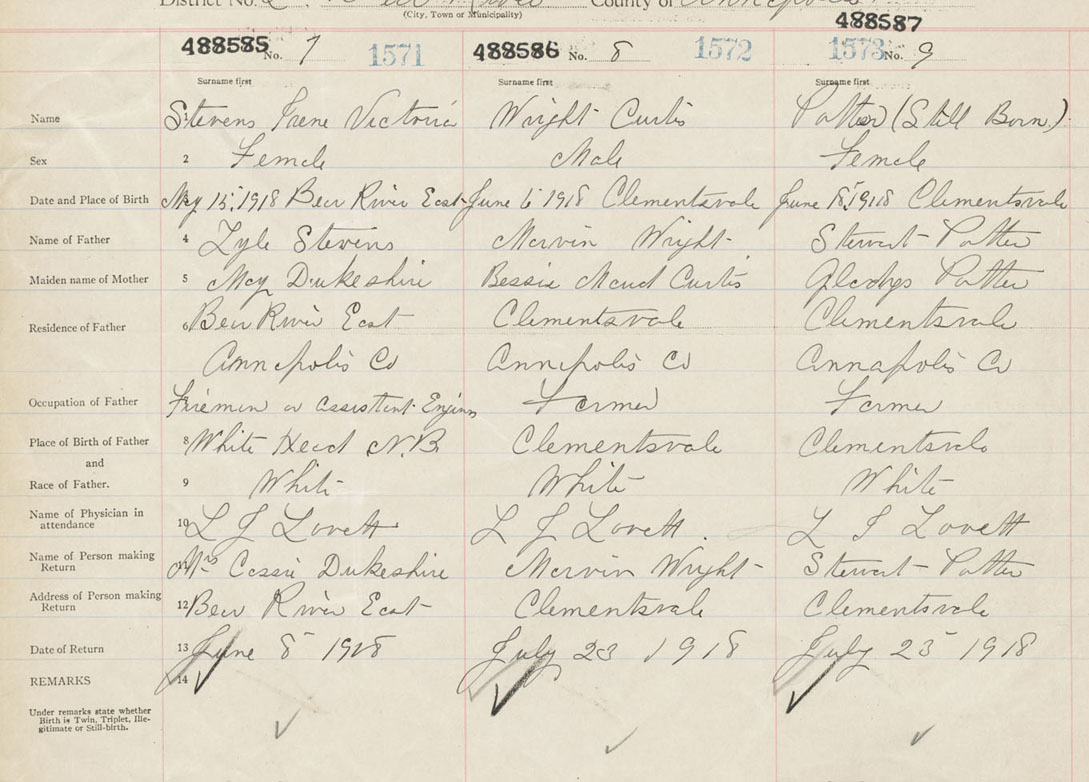 District No. County of Annapolis
(City, Town or Municipality)
488585 No. 7 1571 488586 No. 8 1572 488587 1573 No. 9
Surname first Surname first Surname first
Name 1 Stevens Irene Victoria Wright Curtis Potter (Still Born)
Sex 2 Female Male Female
Date and Place of Birth May 15", 1918 Bear River East June 6 1918 Clementsvale June 1918 Clementsvale
Name of Father 4 Lyle Stevens Marvin Wright Stewart Potter
Maiden name of Mother 5 May Dukeshire Bessie Maud Curtis Gladys Potter
Residence of Father 6 Bear River East Clementsvale Clementsvale
Annapolis Co Annapolis Co Annapolis Co
Occupation of Father Fireman or assistant Engin Farmer Farmer
Place of Birth of Father 8 White Head N.B. Clementsvale Clementsvale
and
Race of Father. 9 White White White
Name of Physician in attendance 10 L J Lovett L J Lovett L J Lovett
Name of Person making Return 11 Mrs Cassie Dukeshire Marvin Wright Stewart Potter
Address of Person making Return 12 Bear River East Clementsvale Clementsvale
Date of Return 13 June 8 1918 July 23 1918 July 23 1918
REMARKS 14
Under remarks state whether
Birth is Twin, Triplet, Ille-
gitimate or Still-birth.